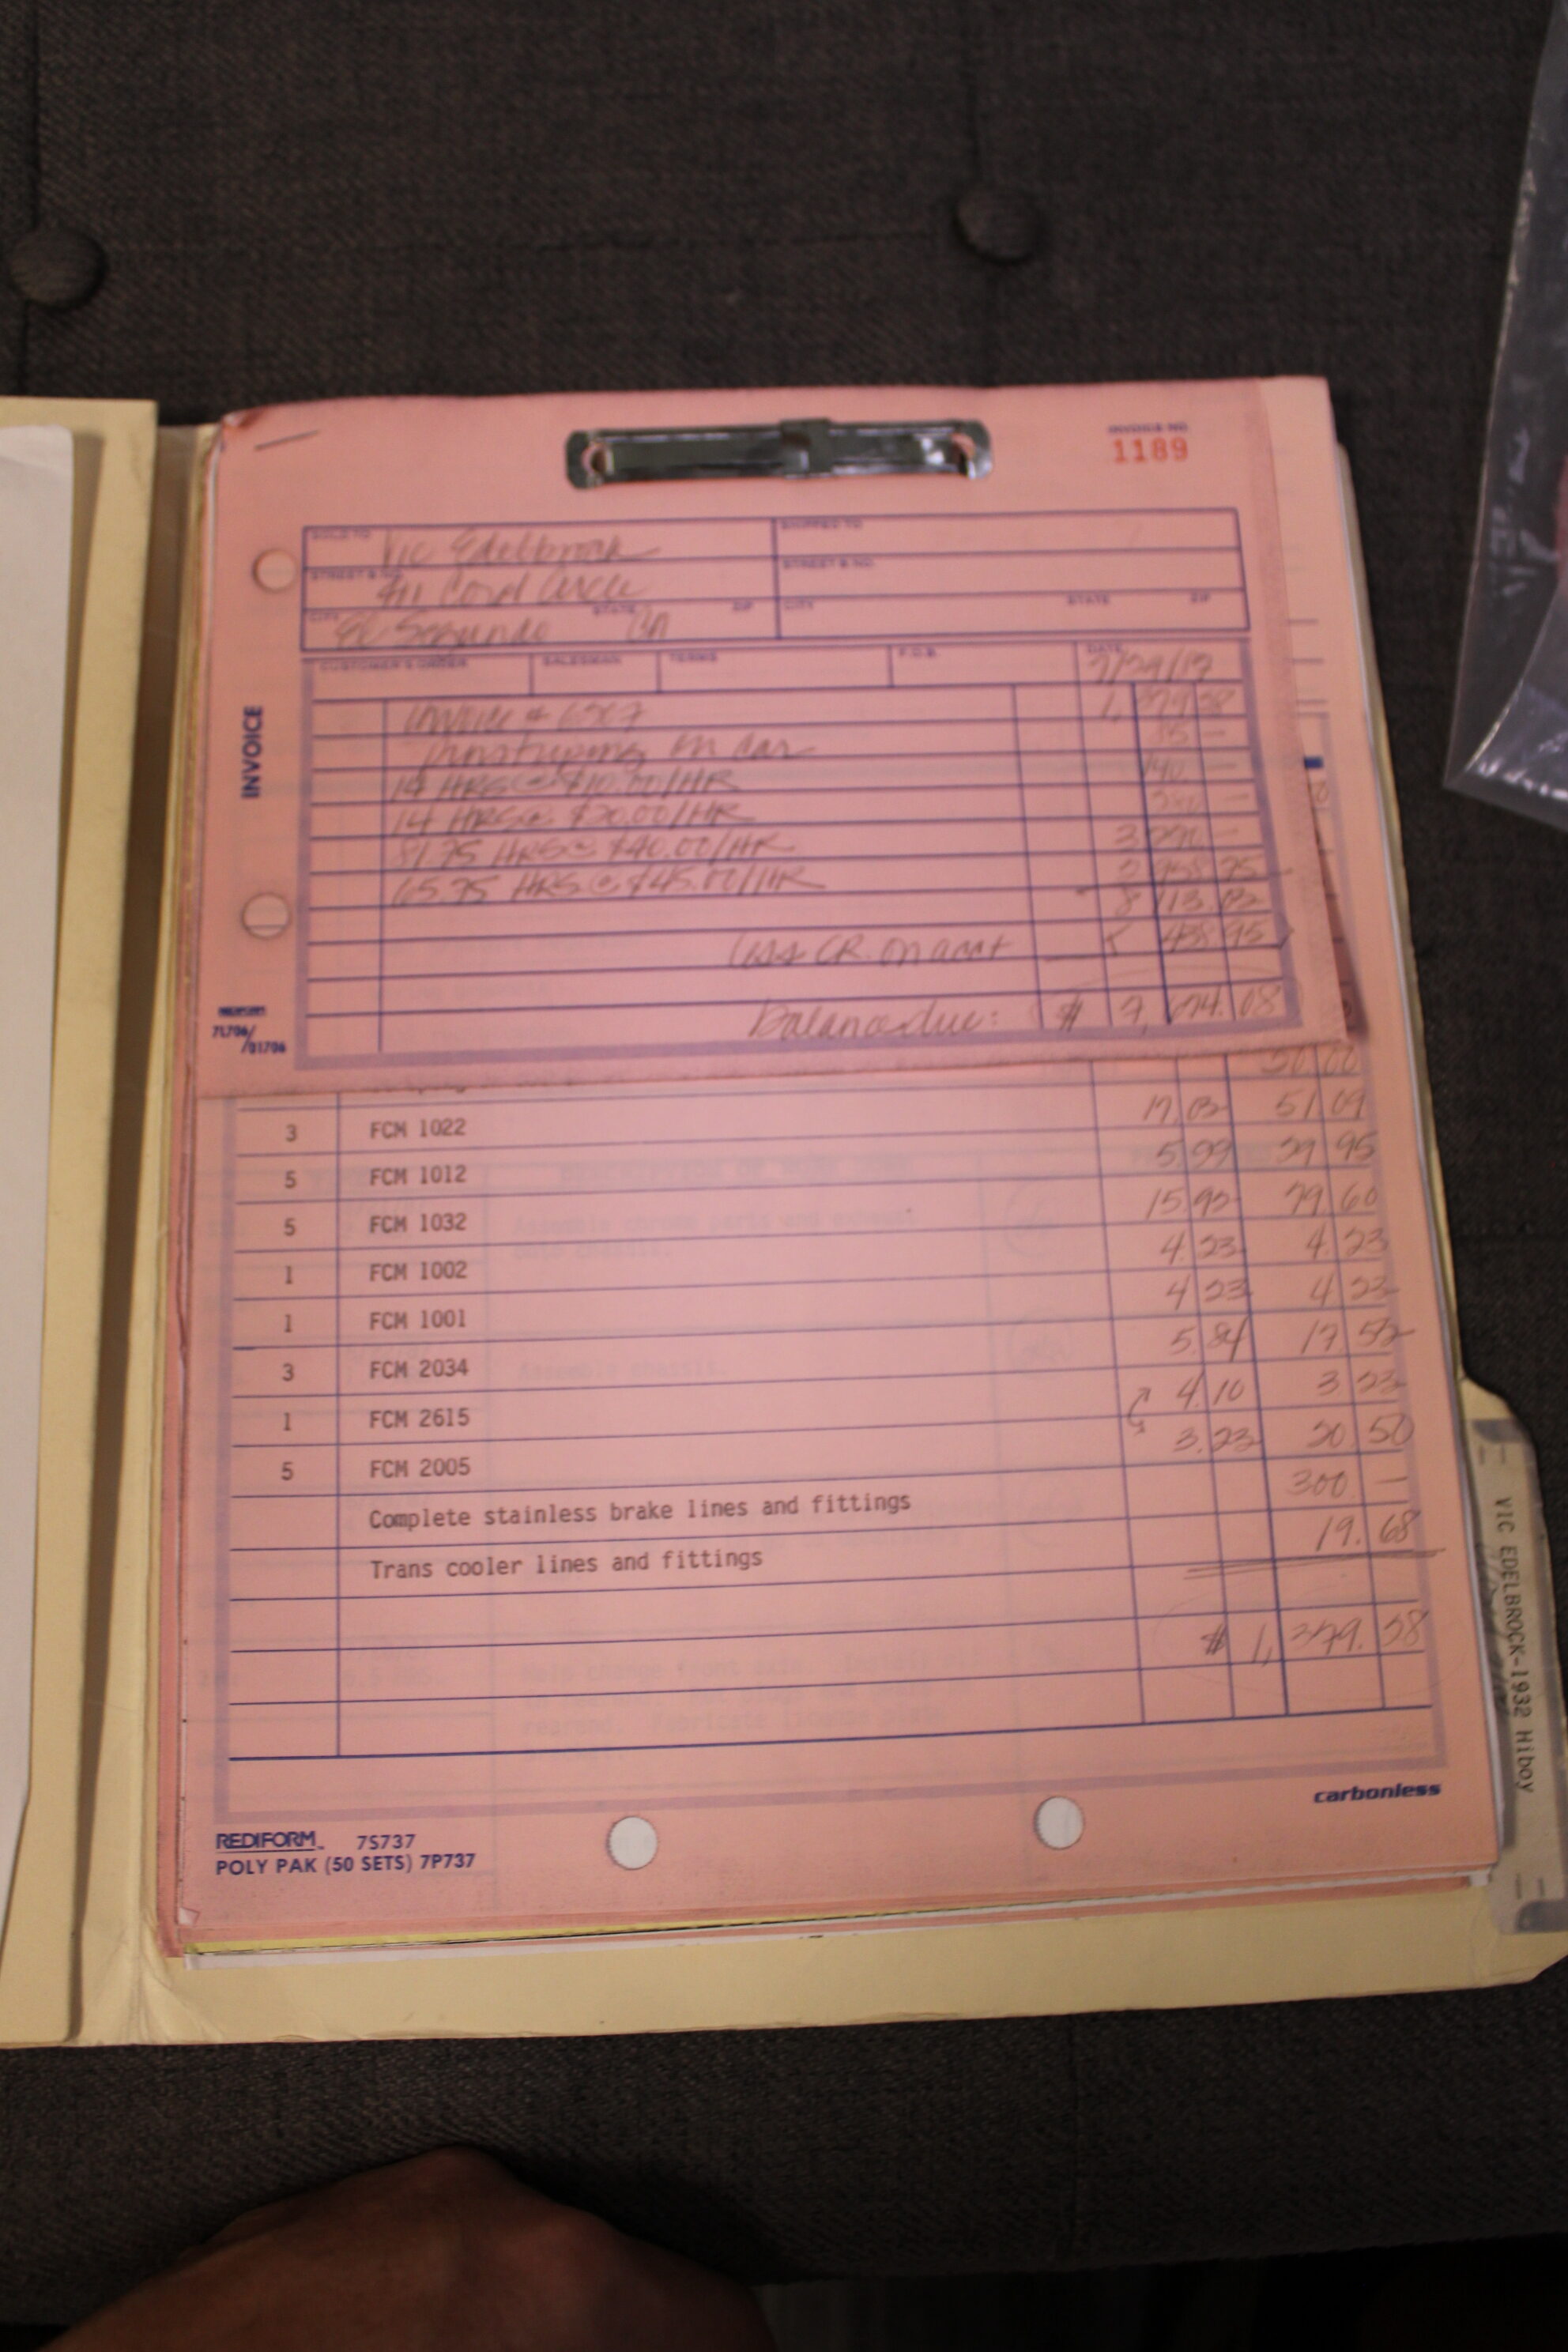 INVOICE NO.
1189
SOLD TO Vic Edelbrock SHIPPED TO
STREET & NO. 411 Coral Circle STREET & NO.
CITY El Segundo STATE CA ZIP CITY STATE ZIP
CUSTOMER'S ORDER SALESMAN TERMS F.O.B. DATE
INVOICE
Invoice #
pinstriping on car
14 HRS @ $10.00/HR 140 —
14 HRS @ $20.00/HR 280 —
81.75 HRS @ $40.00/HR 3,270 —
65.75 HRS @ $45.00/HR 2,958.75
8,113.03
Less CR. on acct 438.95
Balance due: $ 7,674.08
REDIFORM
7L706/
/01706
50.00
3 FCM 1022 17.03 51.09
5 FCM 1012 5.99 29.95
5 FCM 1032 15.92 79.60
1 FCM 1002 4.23 4.23
1 FCM 1001 4.23 4.23
3 FCM 2034 5.84 17.52
1 FCM 2615 4.10 3.23
5 FCM 2005 3.23 20.50
Complete stainless brake lines and fittings 300. —
Trans cooler lines and fittings 19.68
$ 1,379.28
carbonless
REDIFORM 7S737
POLY PAK (50 SETS) 7P737
VIC EDELBROCK-1932 Hiboy